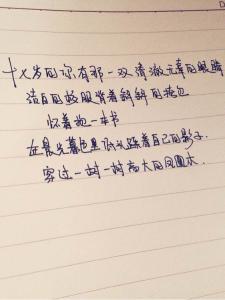 十七岁的你有那一双清澈无辜的眼睛
洁白的校服背着斜斜的挎包
怀着抱一本书
在晨光暮色里低头踩着自己的影子.
穿过一树一树高大的凤凰木.